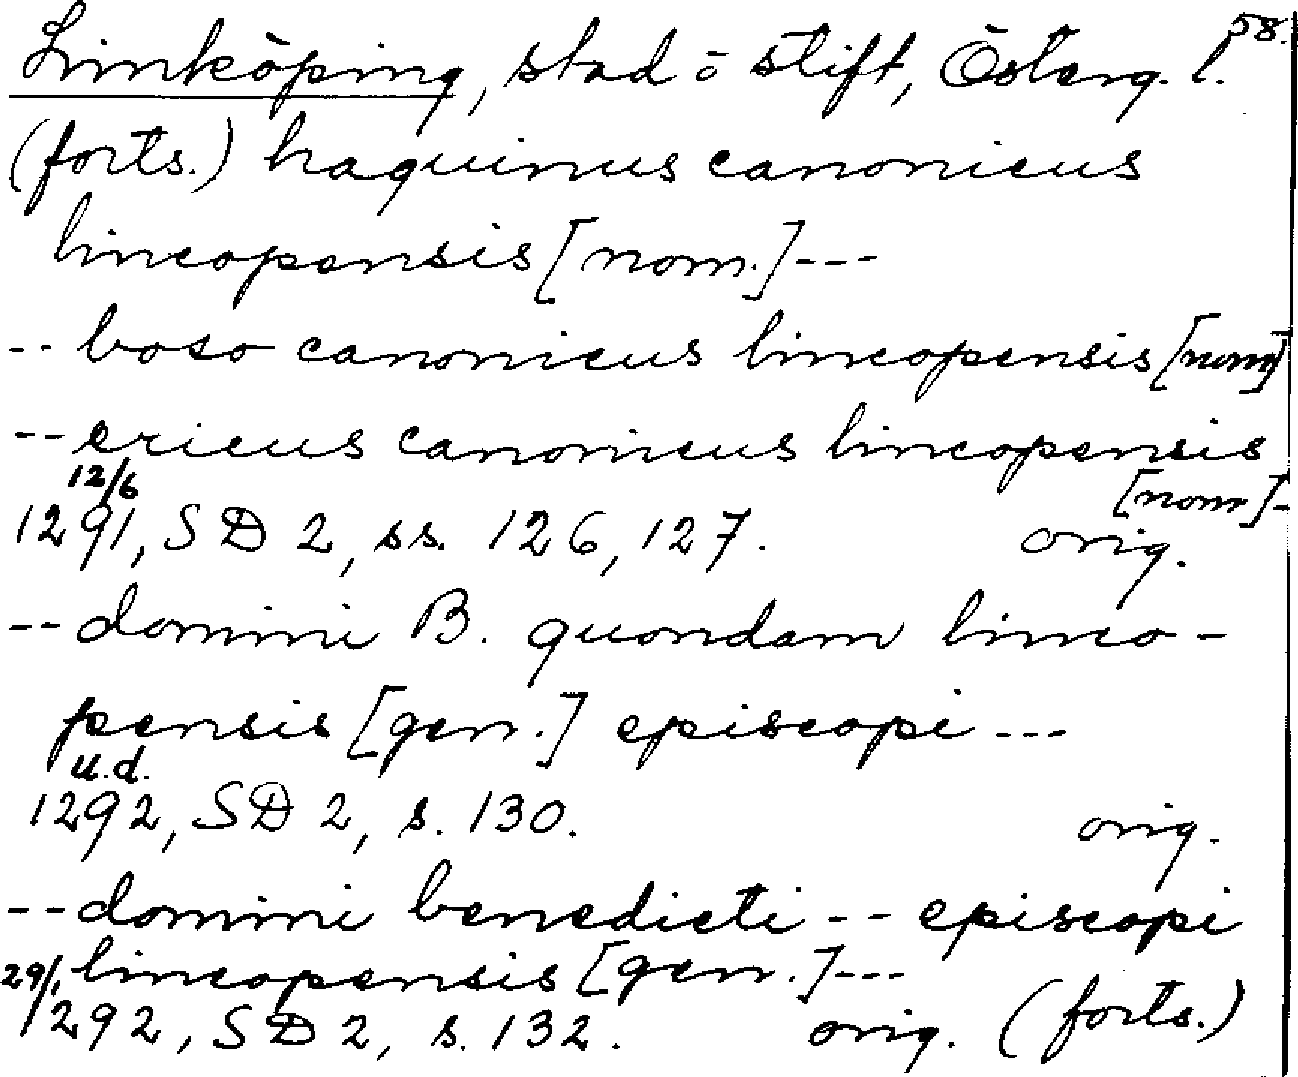 58.
Linköping, stad o stift, Österg. l.
(forts.) haquinus canonicus
lincopensis [nom.] ---
-- boso canonicus lincopensis [nom]
-- ericus canonicus lincopensis
12/6 [nom] -
1291, SD 2, ss. 126, 127. orig.
-- domini B. quondam linco-
pensis [gen.] episcopi ---
u.d.
1292, SD 2, s. 130. orig.
-- domini benedicti -- episcopi
29/1 lincopensis [gen.] ---
1292, SD 2, s. 132. orig. (forts.)